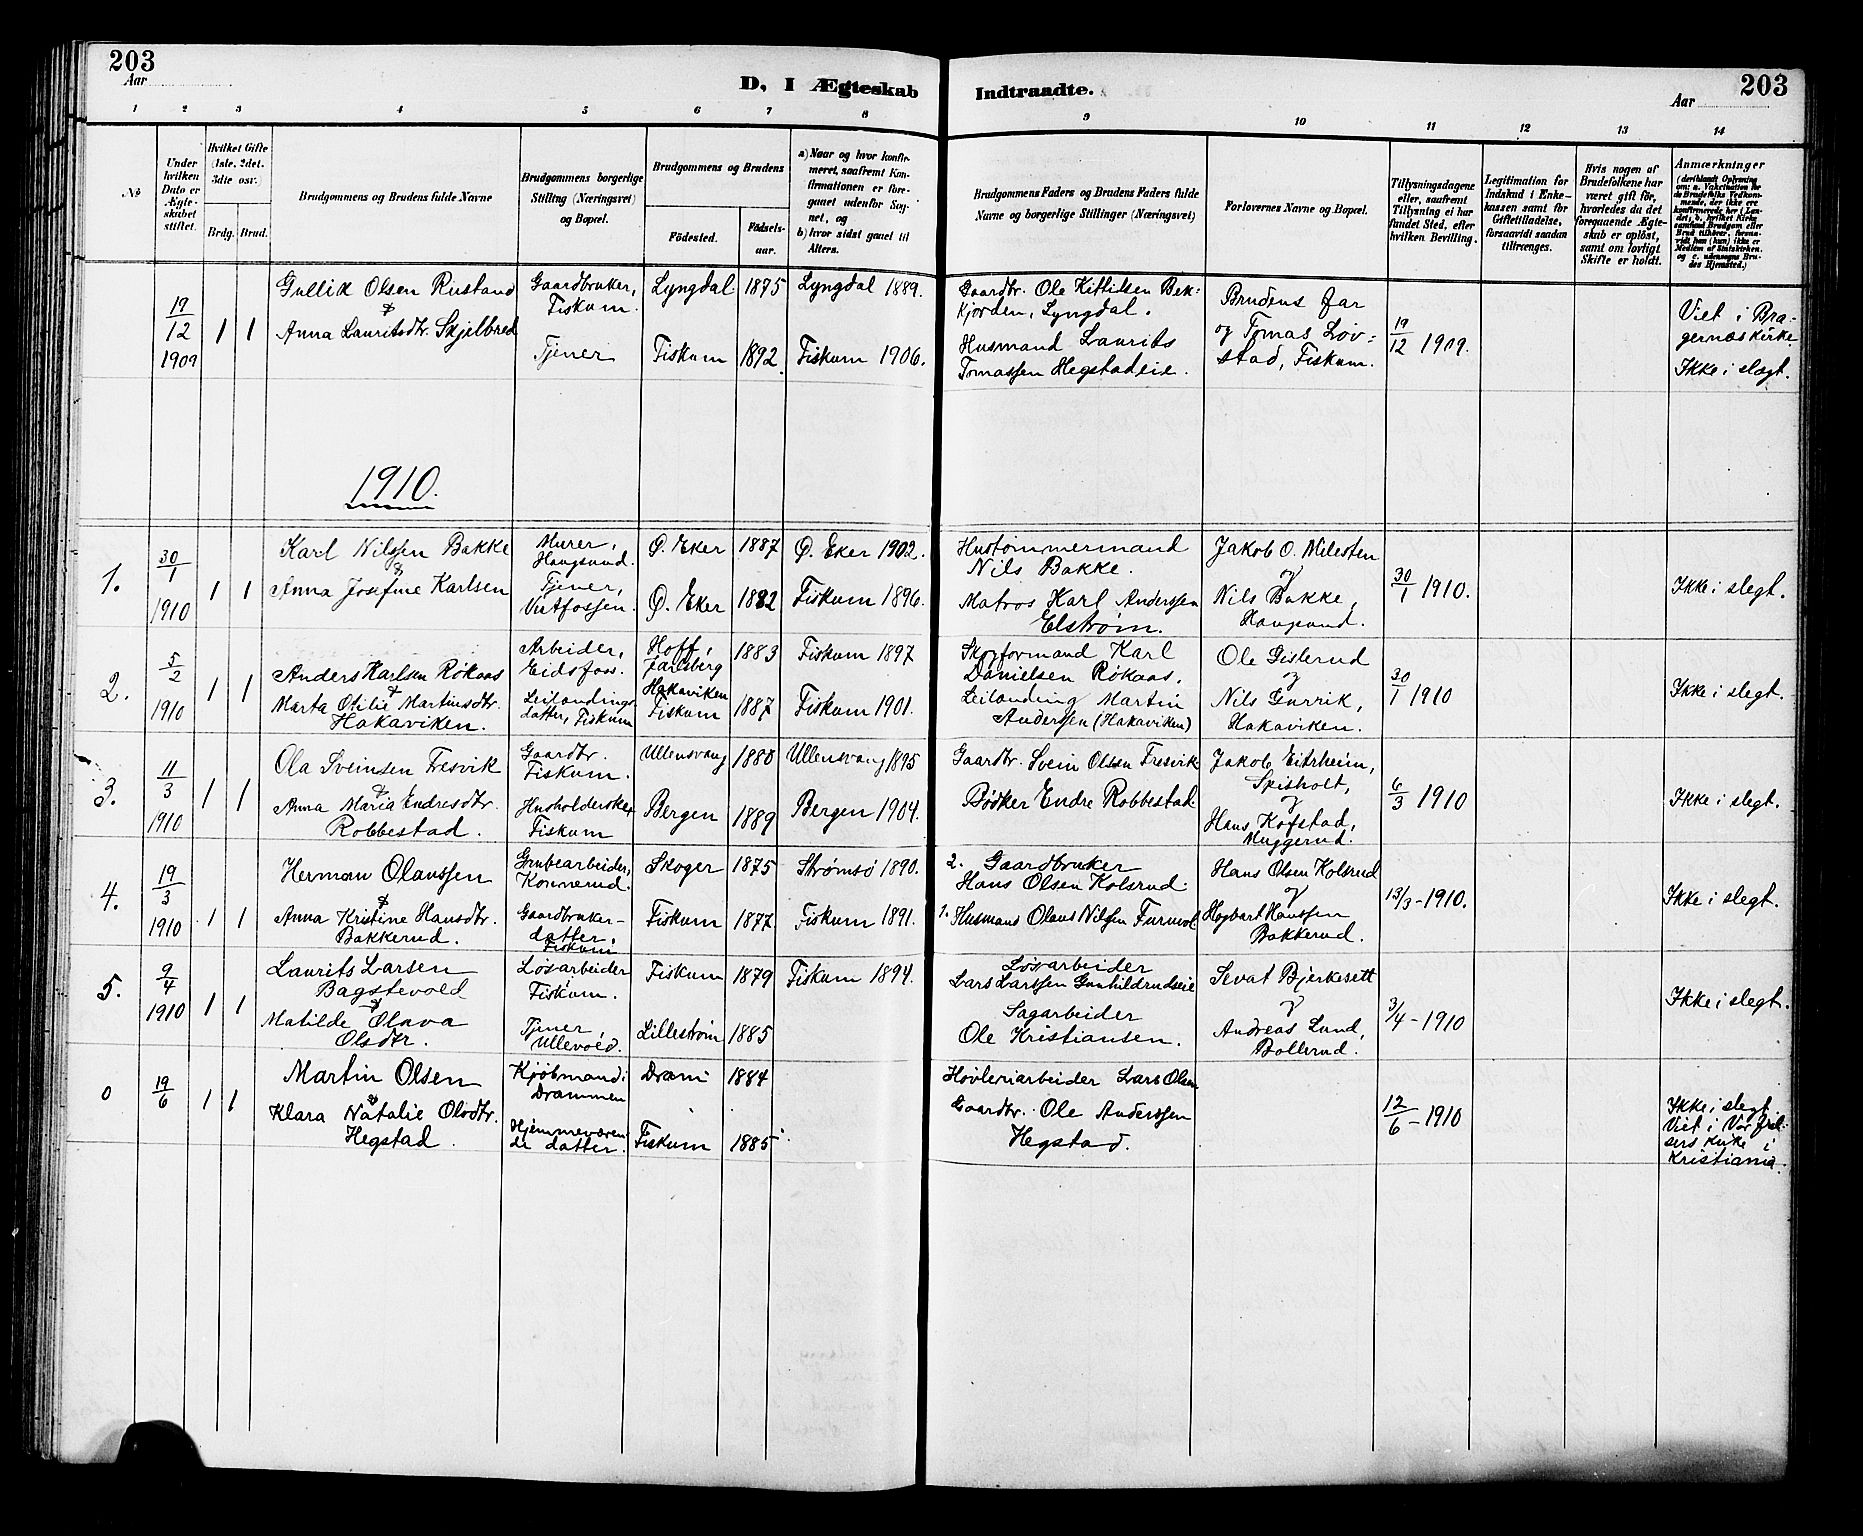 203
Aar
D, I Ægteskab
Indtraadte.
203
Aar
1 2 3 4 5 6 7 8 9 10 11 12 13 14
№
Under hvilken Dato er Ægteskabet stiftet.
Hvilket Gifte (1ste. 2det. 3die osv.
Brdg. Brud.
Brudgommens og Brudens fulde Navne
Brudgommens borgerlige Stilling (Næringsvei) og Bopæl.
Brudgommens og Brudens
Födested.
Födsels-aar.
a) Naar og hvor konfirmeret, saafremt Konfirmationen er foregaaet udenfor Sognet, og
b) hvor sidst gaaet til Alters.
Brudgommens Faders og Brudens Faders fulde Navne og borgerlige Stillinger (Næringsvei)
Forlovernes Navne og Bopæl.
Tillysningsdagene eller, saafremt Tillysning ei har fundet Sted, efter hvilken Bevilling.
Legitimation for Indskud i Enkekassen samt for Giftetilladelse, forsaavidt saadan tiltrænges.
Hvis nogen af Brudefolkene har været gift för, hvorledes da det foregaaende Ægteskab er oplöst, samt om lovligt Skifte er holdt.
Anmærkninger
19/12 1909
1 1
Gullik Olsen Rustand
&
Anna Lauritsdtr. Skjelbred
Gaardbruker,
Fiskum.
Tjener
Lyngdal 1875 Lyngdal 1889.
Fiskum 1892. Fiskum 1906.
Gaardbr. Ole Kittilsen Bek=
kjorden, Lyngdal.
Husmand Laurits
Tomassen Hegstadeie.
Brudens far
og Tomas Løv=
stad, Fiskum.
19/12 1909.
Viet i Bra-
gernæs kirke.
Ikke i slægt.
1910.
1.
30/1 1910
1 1
Karl Nilssen Bakke
&
Anna Josefine Karlsen
Murer,
Haugsund.
Tjener,
Vestfossen.
Ø. Eker 1887 Ø. Eker 1902.
Ø. Eker 1882 Fiskum 1896.
Hustømmermand
Nils Bakke.
Matros Karl Anderssen
Elstrøm.
Jakob O. Milesten
og
Nils Bakke,
Haugsund.
30/1 1910.
Ikke i slegt.
2.
5/2 1910
1 1
Anders Karlsen Røkaas
&
Marta Otilie Martinsdtr.
Hakaviken.
Arbeider,
Eidsfoss.
Leilændings
datter, Fiskum
Hoff,
Jarlsberg 1883 Fiskum 1897
Hakaviken
Fiskum 1887 Fiskum 1901.
Skogformand Karl
Danielsen Røkaas.
Leilænding Martin
Anderssen (Hakaviken)
Ole Gislerud
og
Nils Gurrik,
Hakaviken.
30/1 1910
Ikke i slegt.
3.
11/3 1910
1 1
Ola Sveinsen Fresvik
&
Anna Maria Endresdtr.
Robbestad.
Gaardbr.
Fiskum.
Husholderske
Fiskum
Ullensvang 1880 Ullensvang 1895
Bergen 1889 Bergen 1904.
Gaardbr. Svein Olsen Fresvik
Bødker Endre Robbestad.
Jakob Eitrheim,
Spisholt,
og
Hans Kofstad,
Muggerud.
6/3 1910
Ikke i slegt.
4.
19/3 1910
1 1
Herman Olaussen
&
Anna Kristine Hansdtr.
Bakkerud.
Grubearbeider,
Konnerud.
Gaardbruker-
datter,
Fiskum
Skoger 1875 Strømsø 1890.
Fiskum 1877 Fiskum 1891.
2. Gaardbruker
Hans Olsen Kolsrud.
1. Husmans Olaus Nilssen Furuvol
Hans Olsen Kolsrud
og
Hogbart Hanssen
Bakkerud.
13/3-1910.
Ikke i slegt.
5.
9/4 1910
1 1
Laurits Larsen
Bagstevold
&
Matilde Olava
Olsdtr.
Løsarbeider
Fiskum.
Tjener,
Ullevold.
Fiskum 1879 Fiskum 1894.
Lillestrøm 1885
Løsarbeider
Lars Larssen Gunhildrudseie
Sagarbeider
Ole Kristiansen.
Sevat Bjerkesett
og
Andreas Lund,
Bollerud.
3/4-1910
Ikke i slegt.
0
19/6
1 1
Martin Olsen
&
Klara Natalie Olsdtr.
Hegstad.
Kjøbmand:
Drammen
Hjemmeværen
de datter.
Dram: 1884
Fiskum 1885
Høvleriarbeider Lars Olsen
Gaardbr. Ole Anderssen
Hegstad.
12/6-1910
Ikke i slegt.
Viet i Vor frel-
sers kirke i
Kristiania.